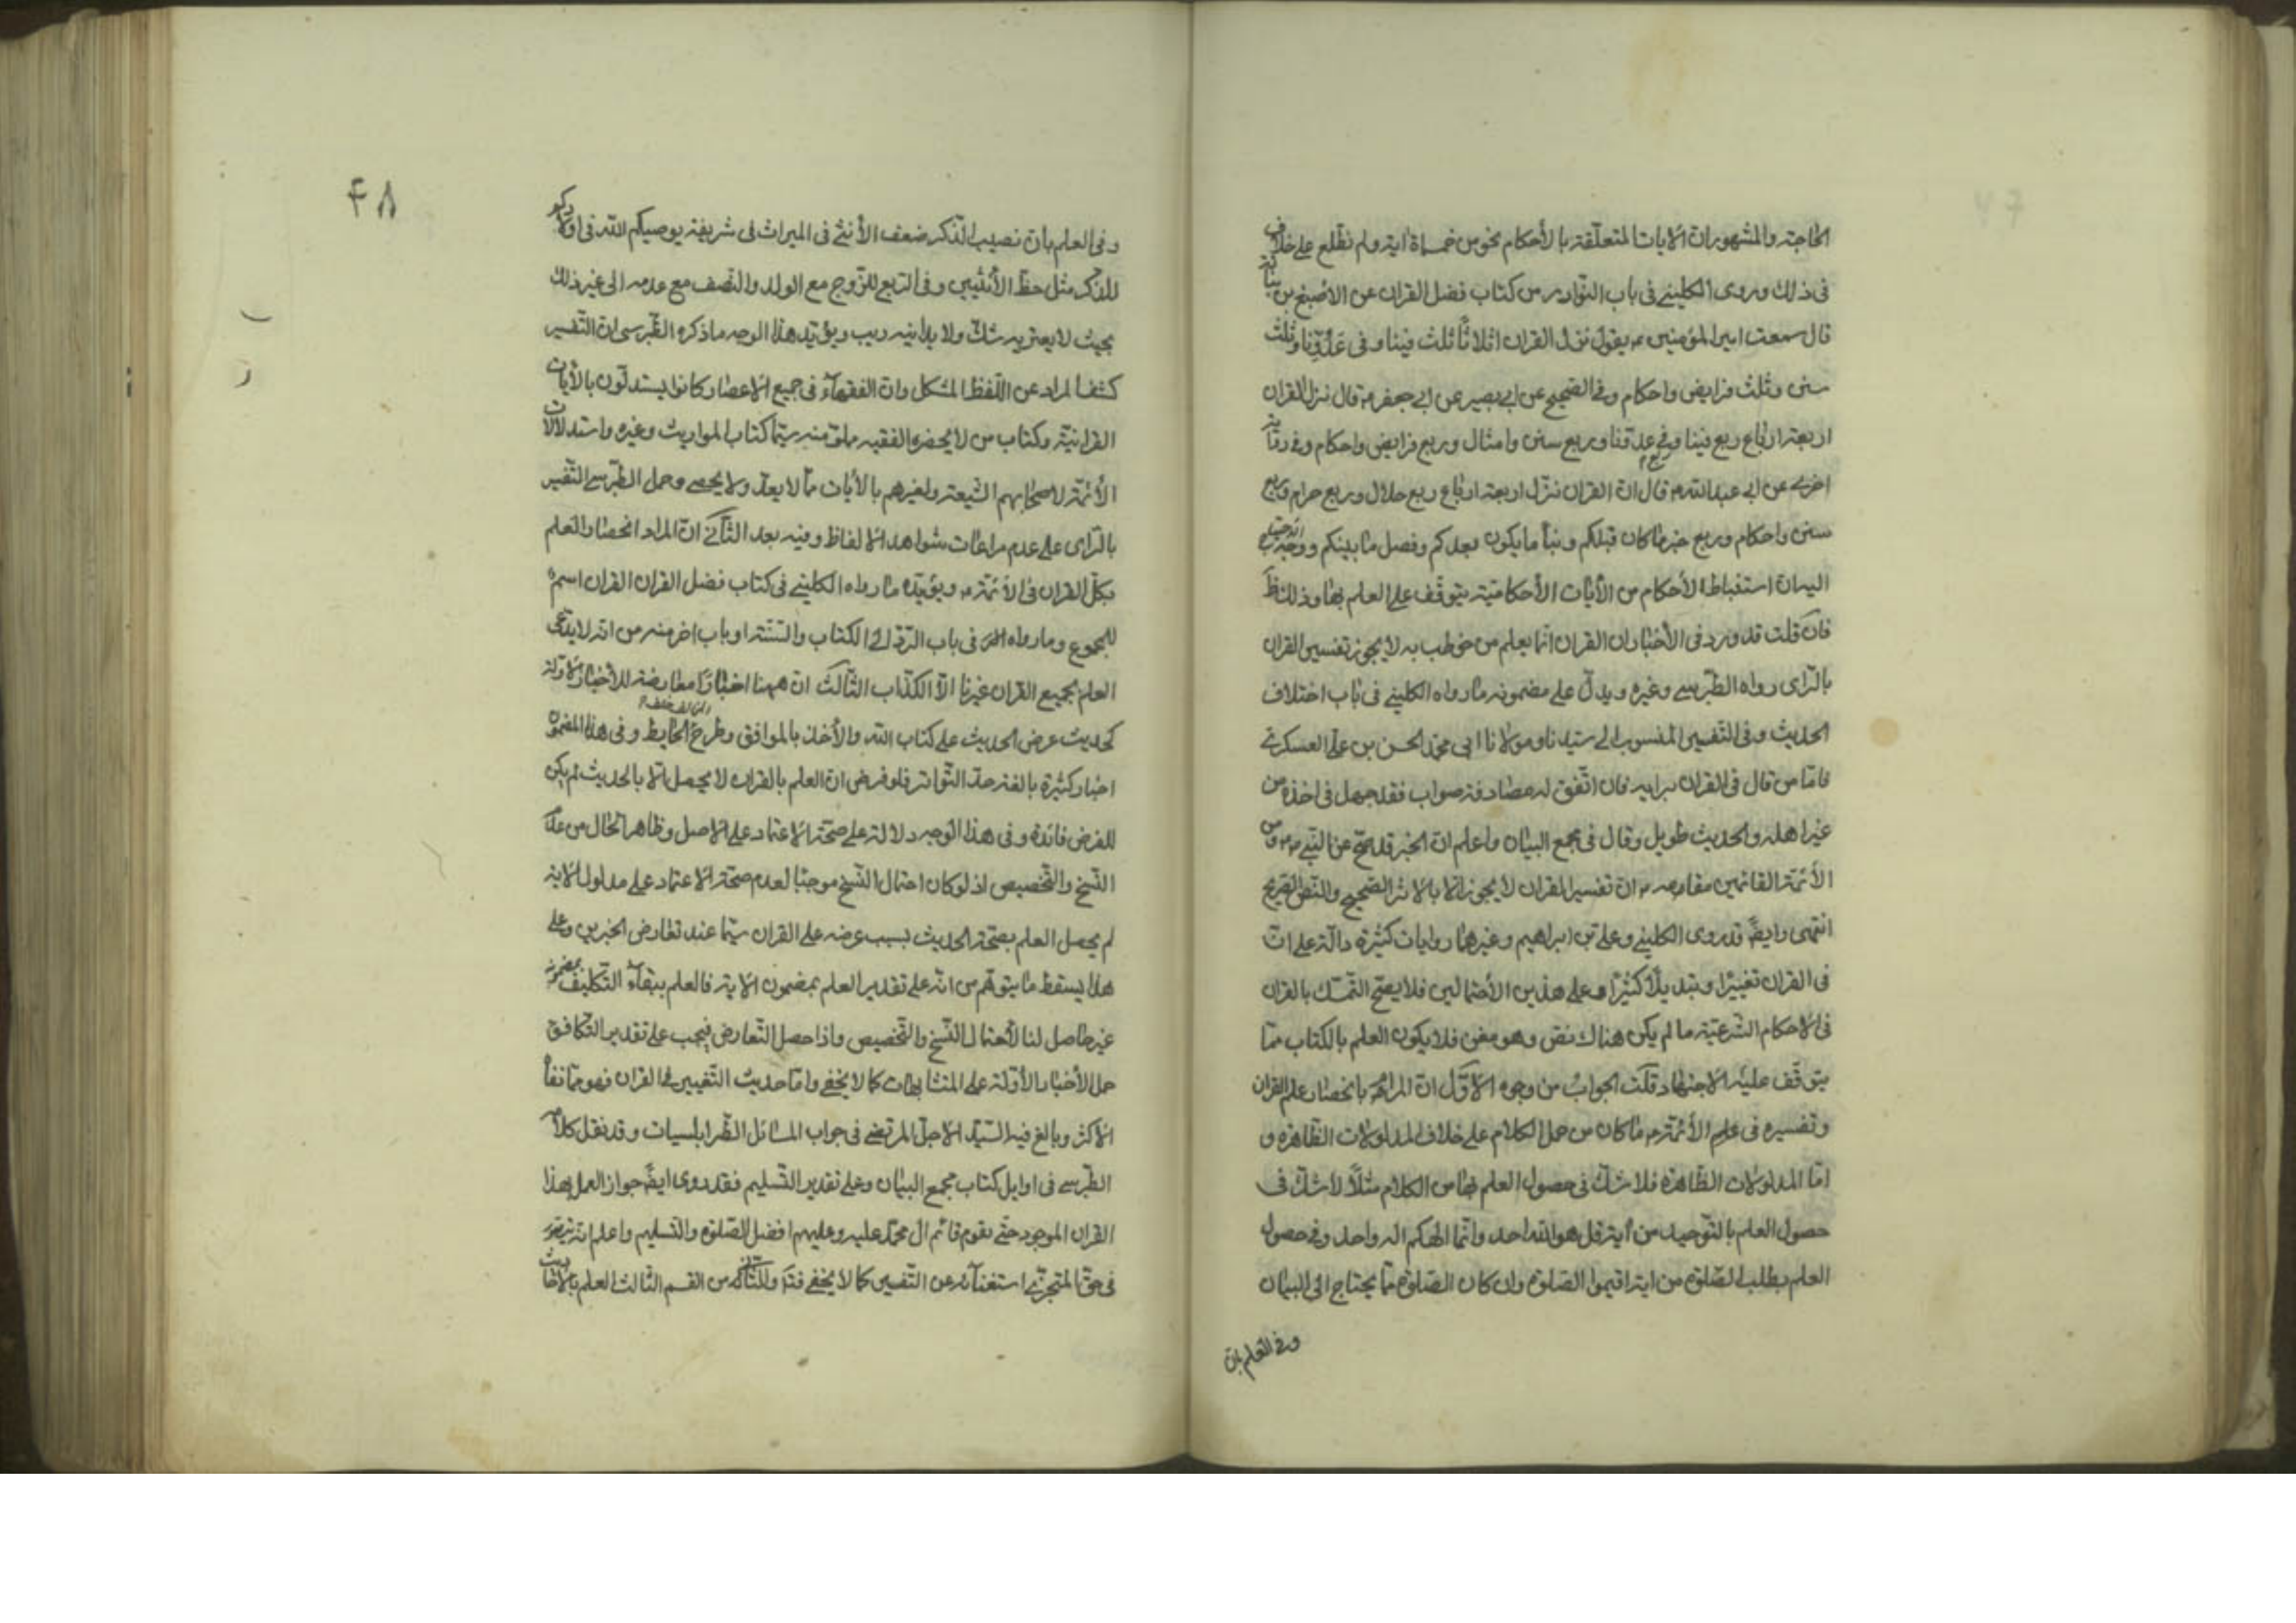 الحاجة والمشهور ان الايات المتعلّقة بالأحكام نحو من خمسمأة اية ولم نطّلع على خلاف
فى ذلك وروى الكلينى فى باب النوادر من كتاب فضل القران عن الاصبغ بن نباتة
قال سمعت امير المؤمنين ع يقول نزل القران اثلاثًا ثلث فينا وفى عَدُوِّنا وثلث
سنن وثلث فرايض واحكام وفى الصّحيح عن ابى بصير عن ابى جعفر ع قال نزل القران
اربعة ارباع ربع فينا وربع فى عدوّنا وربع سنن وامثال وربع فرايض واحكام وفى رواية
اخرى عن ابى عبد الله ع قال انّ القران نزّل اربعة ارباع ربع حلال وربع حرام وربع
سنن واحكام وربع خبر ما كان قبلكم ونبأ ما يكون بعدكم وفصل ما بينكم ووجه الاحتياج
اليه ان استنباط الأحكام من الأيات الأحكاميّة يتوقّف على العلم بها وذلك ظَ
فان قلت قد ورد فى الأخبار ان القران انّما يعلم من خوطب به لا يجوز تفسير القران
بالرّاى رواه الطّبرسى وغيره ويدلّ على مضمونه ما رواه الكلينى فى باب اختلاف
الحديث وفى التفسير المنسوب الى سيّدنا ومولانا ابى محمّد الحسن بن علىّ العسكرى ع
فامّا من قال فى القران برايه فان اتّفق له مصادفة صواب فقد جهل فى اخذه من
غير اهله والحديث طويل وقال فى مجمع البيان واعلم ان الخبر قد صحّ عن النّبى ص وعن
الأئمّة القائمين مقامه ع انّ تفسير القران لا يجوز الّا بالاثر الصّحيح والنّصّ الصّريح
انتهى وايضًا قد روى الكلينى وعلىّ بن ابراهيم وغيرهما روايات كثيرة دالّة على انّ
فى القران تغييرًا وتبديلًا كثيرًا وعلى هذين الأحتمالين فلا يصحّ التّمسّك بالقران
فى الاحكام الشّرعيّة ما لم يكن هناك نصّ وهو مغن فلا يكون العلم بالكتاب ممّا
يتوقّف عليه الاجتهاد قلت الجواب من وجوه الاوّل انّ المراد بانحصار علم القران
وتفسيره فى علم الأئمّة ع ما كان من حمل الكلام على خلاف المدلولات الظّاهرة و
امّا المدلولات الظّاهرة فلا شكّ فى حصول العلم بها من الكلام مثلًا لا شكّ فى
حصول العلم بالتّوحيد من اية قل هو الله احد وانّما الهكم اله واحد وفى حصول
العلم بطلب الصّلوة من اية اقيموا الصّلوة وان كان الصّلوة ممّا يحتاج الى البيان
وفى العلم بان
۴۸
وفى العلم بان نصيب الذّكر ضعف الأنثى فى الميراث فى شريفة يوصيكم الله فى اولادكم
للذّكر مثل حظّ الأنثيين وفى الرّبع للزّوج مع الولد والنّصف مع عدمه الى غير ذلك
بحيث لا يعتريه شكّ ولا يدانيه ريب ويؤيّد هذا الوجه ما ذكره الطّبرسى ان التّفسير
كشف المراد عن اللّفظ المشكل وان الفقهاء فى جميع الاعصار كانوا يستدلّون بالأيات
القرانيّة وكتاب من لا يحضره الفقيه مملوّ منه سيّما كتاب المواريث وغيره واستدلالات
الأئمّة لاصحابهم الشّيعة ولغيرهم بالأيات ممّا لا يعدّ ولا يحصى وحمل الطّبرسى التّفسير
بالرّاى على عدم مراعات شواهد الالفاظ وفيه بعد الثّانى انّ المراد انحصار العلم
بكلّ القران فى الأئمّة ع ويؤيّده ما رواه الكلينى فى كتاب فضل القران القران اسم
للمجموع وما رواه فى باب الرّدّ الى الكتاب والسّنّة او باب اخر منه من انّه لا يدّعى
العلم بجميع القران غيرنا الّا الكذّاب الثّالث ان ههنا اخبارًا معارضة للأخبار الاوّلة
كحديث عرض الحديث على كتاب الله والأخذ بالموافق وطرح الحايط وفى هذا المضمون
اخبار كثيرة بالغة حدّ التّواتر فلو فرض انّ العلم بالقران لا يحصل الّا بالحديث لم يكن
للعرض فائدة وفى هذا الوجه دلالة على صحّة الاعتماد على الاصل وظاهر الحال من عدم
النّسخ والتّخصيص اذ لو كان احتمال النّسخ موجبًا لعدم صحّة الاعتماد على مدلول الاية
لم يحصل العلم بصحّة الحديث بسبب عرضه على القران سيّما عند تعارض الخبرين وعلى
هذا يسقط ما يتوهّم من انّه على تقدير العلم بمضمون الاية فالعلم ببقاء التّكليف بمضمونه
غير حاصل لنا لاحتمال النّسخ والتّخصيص واذا حصل التّعارض فيجب على تقدير التّكافؤ
حمل الأخبار الأوّلة على المتشابهات كما لا يخفى وامّا حديث التّغيير فى القران فهو ممّا نفاه
الاكثر وبالغ فيه السّيّد الاجلّ المرتضى فى جواب المسائل الطّرابلسيات وقد نقل كلامه
الطّبرسى فى اوايل كتاب مجمع البيان وعلى تقدير التّسليم فقد روى ايضًا جواز العمل بهذا
القران الموجود حتّى يقوم قائم ال محمّد عليه وعليهم افضل الصّلوة والتّسليم واعلم انّه يتصوّر
فى حقّ المتجزّى استغنآئه عن التّفسير كما لا يخفى فتدبّر والثّالثة من القسم الثّالث العلم بالاحاديث